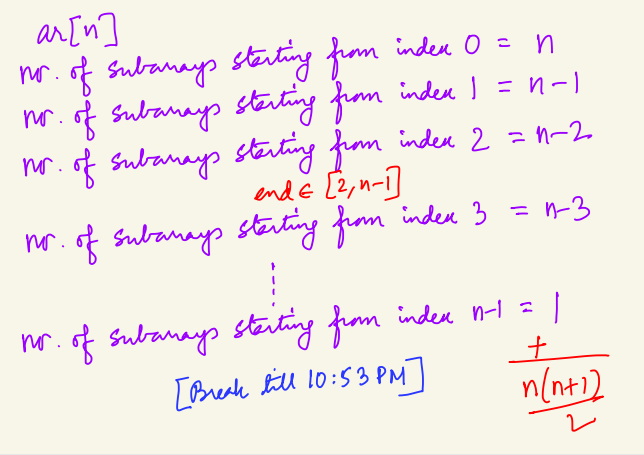 ar[n]
nr. of subarrays starting from index 0 = n
nr. of subarrays starting from index 1 = n-1
nr. of subarrays starting from index 2 = n-2
end ∈ [2, n-1]
nr. of subarrays starting from index 3 = n-3
nr. of subarrays starting from index n-1 = 1
+
[Break till 10:53 PM]
n(n+1)
2